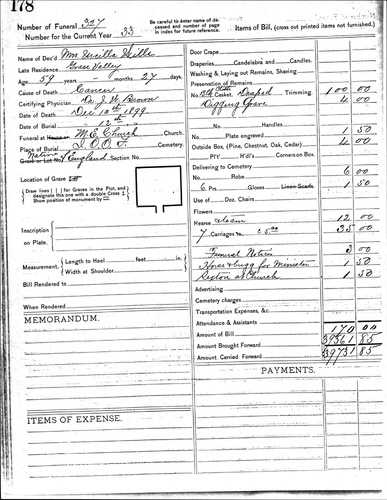 178
Number of Funeral 327
Number for the Current Year 33
Be careful to enter name of deceased and number of page in index for future reference.
Items of Bill, (cross out printed items not furnished.)
Name of Dec'd Mrs
Late Residence Grass Valley
Age 59 years - months 27 days.
Cause of Death Cancer
Certifying Physician Dr. J. W. Brown
Date of Death Dec 10th 1899
Date of Burial " 12th "
Funeral at House or M.E. Church Church.
Place of Burial I.O.O.F. Cemetery.
Native
Grave or Lot No. of England Section No.
Location of Grave
Draw lines for Graves in the Plot, and designate this one with a double Cross
Show position of monument by
Inscription
on Plate.
Measurement, Length to Heel feet in.
Width at Shoulder
Bill Rendered to
When Rendered
MEMORANDUM.
ITEMS OF EXPENSE.
Door Crape
Draperies, Candelabra and Candles.
Washing & Laying out Remains, Shaving
Preservation of Remains
Cloth
No. Blk Casket. Draped Trimming. 100 00
Digging Grave 4 00
No. Handles
Plate engraved 1 50
Outside Box, (Pine, Chestnut, Oak, Cedar) 4 00
PIY H'd's Corners on Box.
Delivering to Cemetery 6 00
No. Robe
6 Prs. Gloves Linen Scarfs. 1 50
Use of Doz. Chairs
Flowers
Hearse & team 12 00
7 Carriages @ 5.00 35 00
Funeral Notices 3 00
Horse & bugg for Minister 1 50
Sexton at Church 1 50
Advertising
Cemetery charges
Transportation Expenses, &c.
Attendance & Assistants
Amount of Bill 170 00
Amount Brought Forward 39561 85
Amount Carried Forward 39731 85
PAYMENTS.